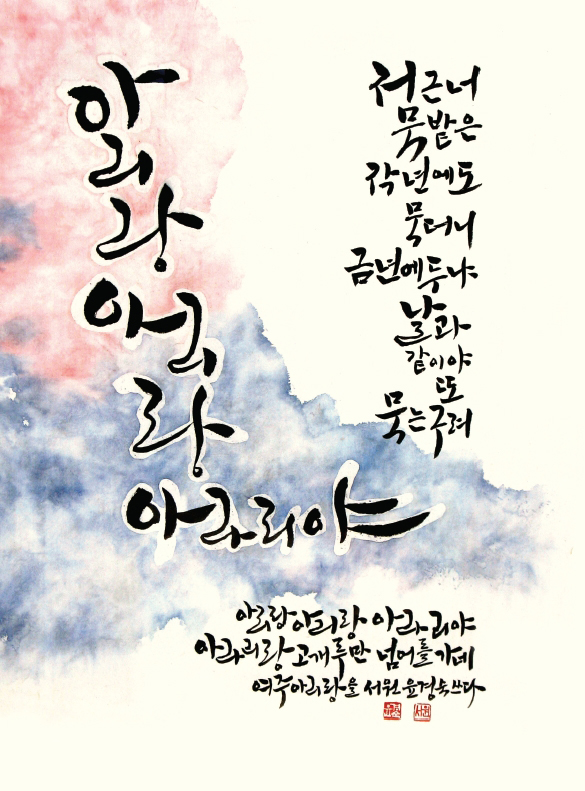 아
리
랑
아리
랑
아라리야
저근너
묵밭은
작년에도
묵더니
금년에두냐
날과
같이야
또
묵는구려
아리랑 아리랑 아라리야
아라리랑 고개루만 넘어를 가네
여주아리랑을 서원 윤경숙 쓰다